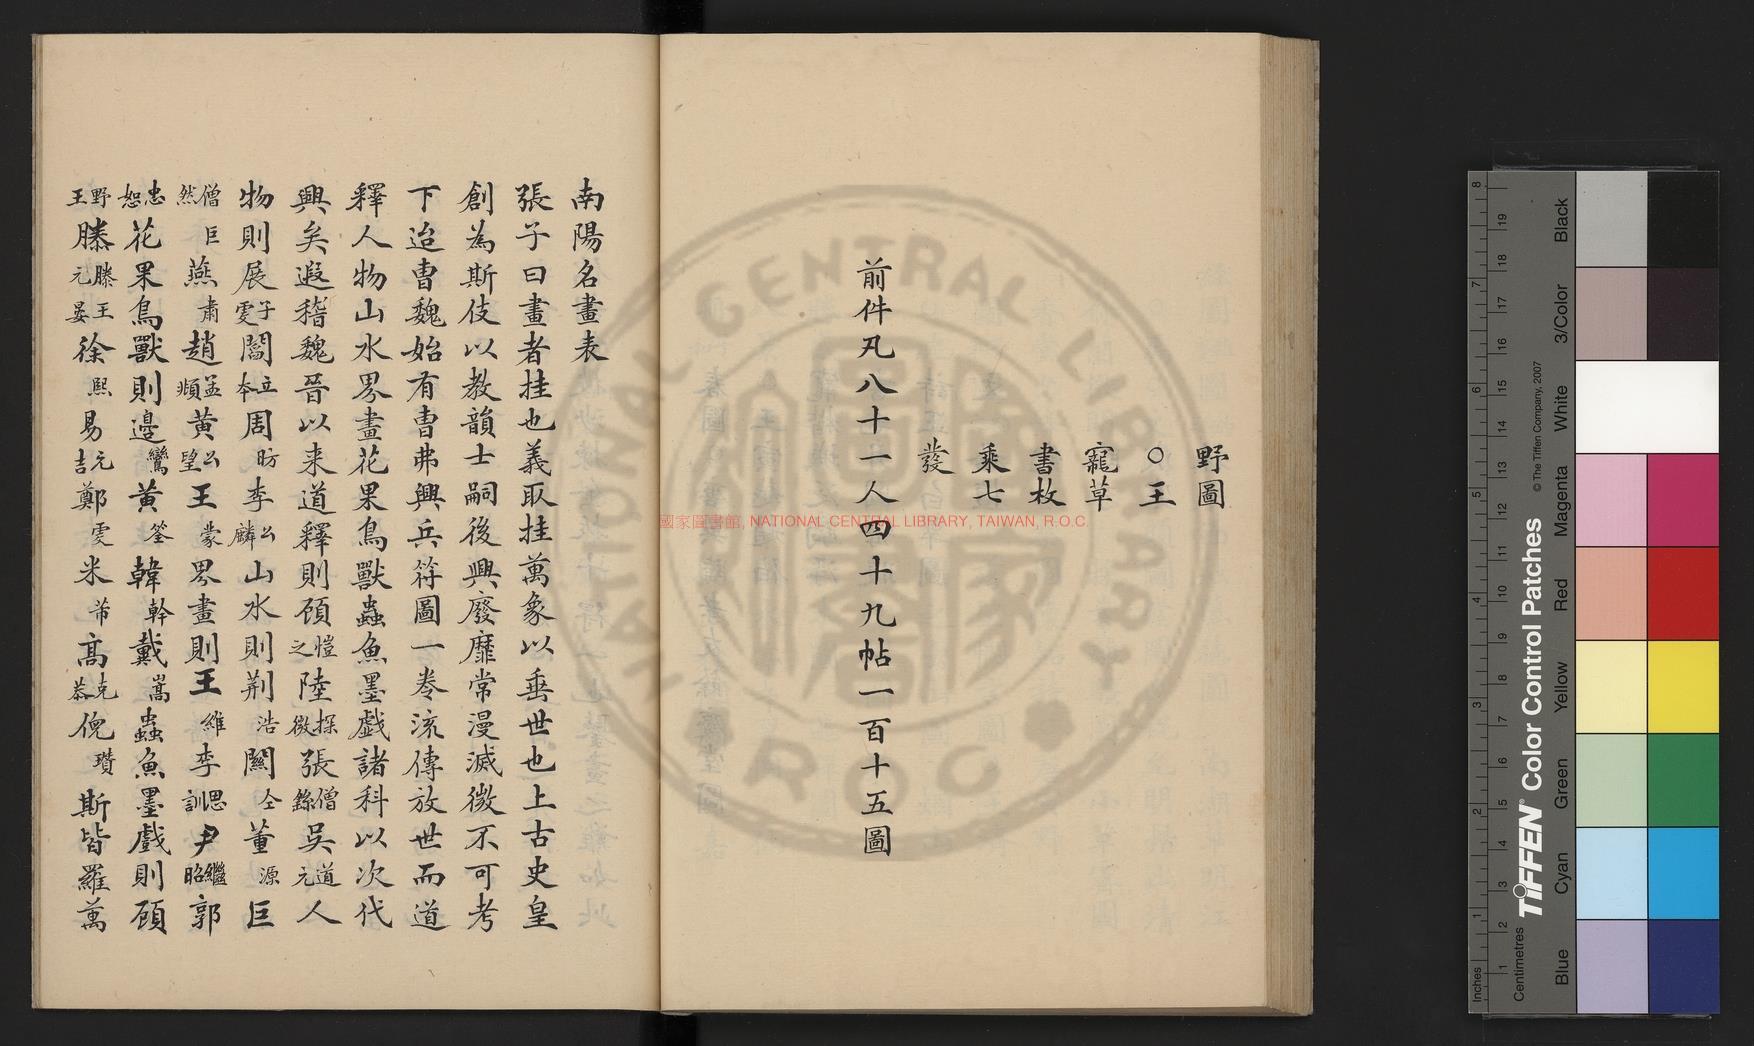 野圖
○王
寵草
書枚
乘七
發
前件凡八十一人四十九帖一百十五圖
南陽名畫表
張子曰畫者挂也義取挂萬象以垂世也上古史皇
創為斯伎以教韻士嗣後興廢靡常漫滅微不可考
下迨曺魏始有曺弗興兵符圖一卷流傳放世而道
釋人物山水界畫花果鳥獸蟲魚墨戲諸科以次代
興矣遐稽魏晉以来道釋則顾愷之陸探微張僧繇吳道元人
物則展子虔閻立本周昉李公麟山水則荆浩關仝董源巨
僧巨然燕肅趙孟頫黄公望王蒙界畫則王維李思訓尹繼昭郭
忠恕花果鳥獸則邉鸞黄筌韓幹戴嵩蟲魚墨戲則顾
野王滕滕王元晏徐熙易元吉鄭虔米芾髙克恭倪瓚斯皆羅萬
國家圖書館, NATIONAL CENTRAL LIBRARY, TAIWAN, R.O.C
NATIONAL CENTRAL LIBRARY
R.O.C
Inches
Centimetres
TIFFEN® Color Control Patches
© The Tiffen Company, 2007
Blue
Cyan
Green
Yellow
Red
Magenta
White
3/Color
Black